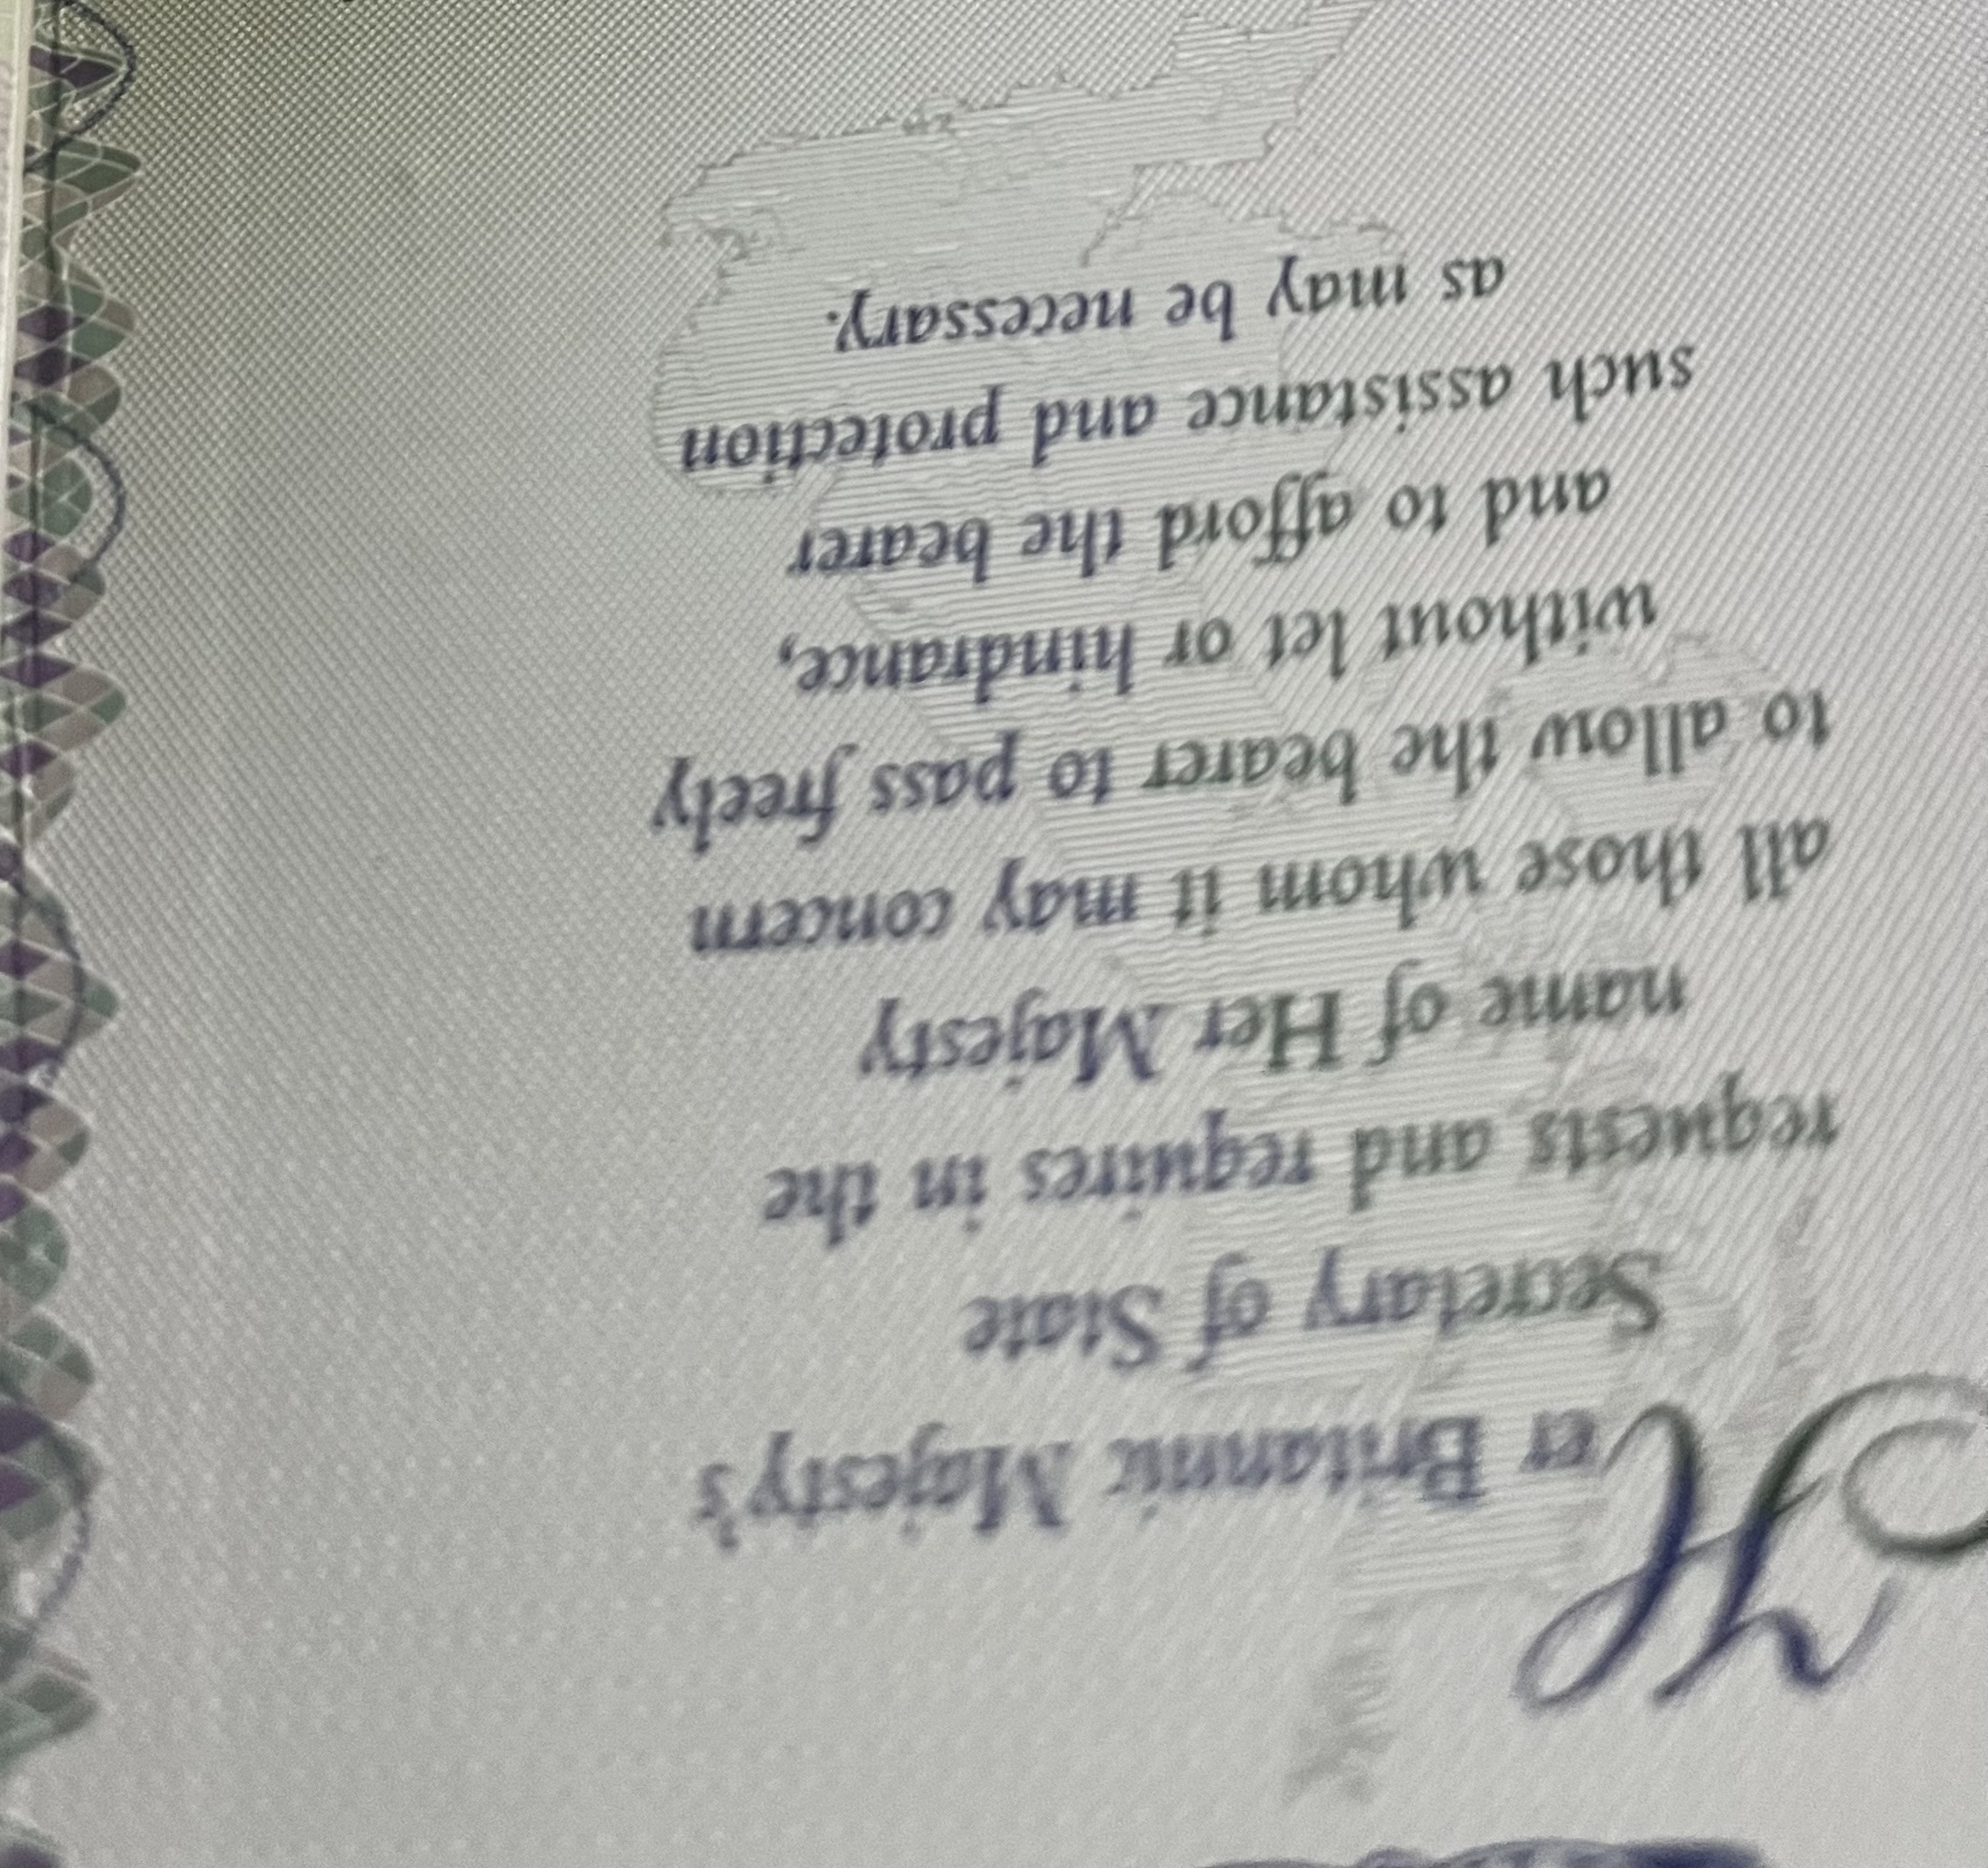 Her Britannic Majesty's
Secretary of State
requests and requires in the
name of Her Majesty
all those whom it may concern
to allow the bearer to pass freely
without let or hindrance,
and to afford the bearer
such assistance and protection
as may be necessary.